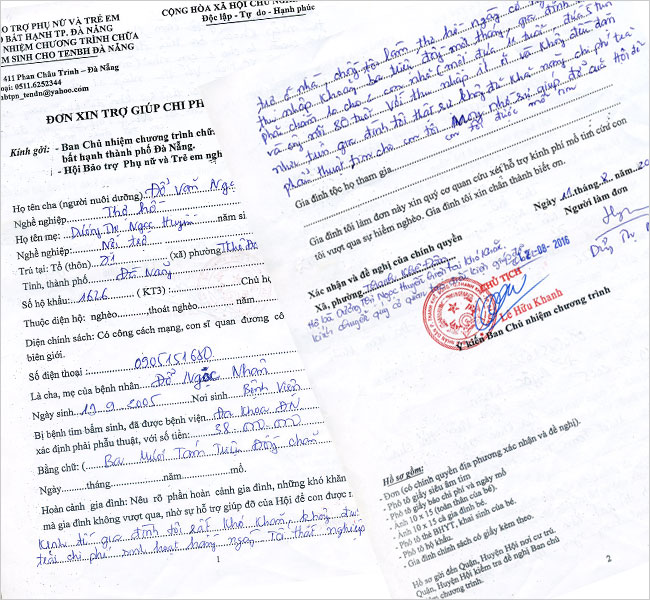 O TRỢ PHỤ NỮ VÀ TRẺ EM
BẤT HẠNH TP. ĐÀ NẴNG
NHIỆM CHƯƠNG TRÌNH CHỮA
M SINH CHO TENBH ĐÀ NẴNG
411 Phan Châu Trinh – Đà Nẵng
oại: 0511.6252344
abtpn_tendn@yahoo.com
CỘNG HÒA XÃ HỘI CHỦ NGH
Độc lập - Tự do - Hạnh phúc
ĐƠN XIN TRỢ GIÚP CHI PH
Kính gửi: - Ban Chủ nhiệm chương trình chữ
bất hạnh thành phố Đà Nẵng.
- Hội Bảo trợ Phụ nữ và Trẻ em ngh
Họ tên cha (người nuôi dưỡng) Đỗ Văn Ngọc
Nghề nghiệp Thợ hồ
Họ tên mẹ: Dương Thị Ngọc Huyền năm si
Nghề nghiệp: Nội trợ
Trú tại: Tổ (thôn) 21 (xã) phường
Tỉnh, thành phố Đà Nẵng
Số hộ khẩu: 1626 ( KT3) : Chủ hộ
Thuộc diện hộ: nghèo, thoát nghèo năm
Diện chính sách: Có công cách mạng, con sĩ quan đương có
biên giới.
Số điện thoại : 0905151680
Là cha, mẹ của bệnh nhân Đỗ Ngọc Nhân
Ngày sinh 19.9.2005 Nơi sinh Bệnh Viện
Bị bệnh tim bẩm sinh, đã được bệnh viện Đa Khoa ĐN
xác định phải phẫu thuật, với số tiền: 38.000.000
Bằng chữ: ( Ba Mươi Tám Triệu Đồng chẵn
Ngày tháng năm mổ.
Hoàn cảnh gia đình: Nêu rõ phần hoàn cảnh gia đình, những khó khăn
mà gia đình không vượt qua, nhờ sự hỗ trợ giúp đỡ của Hội để con được
Kinh tế gia đình tôi rất khó khăn, không đủ
trải chi phí sinh hoạt hàng ngày. Tôi thất nghiệp
1
trợ ở nhà, chồng tôi làm thợ hồ ngày có
thu nhập khoảng ba triệu đồng một tháng, gia đình
phải chăm lo cho 2 con nhỏ (một đứa 11 tuổi đứa 5 tuổi
và ông nội 80 tuổi. Với thu nhập ít ỏi và không đều đặn
như trên, gia đình tôi thật sự không đủ khả năng chi phí
phẫu thuật tim cho con tôi. Mong nhờ sự giúp đỡ của Hội để
con tôi được mổ tim
Gia đình tộc họ tham gia
Gia đình tôi làm đơn này xin quý cơ quan xét hỗ trợ kinh phí mổ tim cứu con
tôi vượt qua sự hiểm nghèo. Gia đình tôi xin chân thành biết ơn.
Ngày 11 tháng 8 năm 20
Người làm đơn
Xác nhận và đề nghị của chính quyền
Xã, phường
Hộ bà Dương Thị Ngọc Huyền
08- 2016
CHỦ TỊCH
Lê Hữu Khanh
Ý kiến Ban Chủ nhiệm chương trình
Hồ sơ gồm:
- Đơn (có chính quyền địa phương xác nhận và đề nghị).
- Phô tô giấy siêu âm tim
- Phô tô giấy báo chi phí và ngày mổ
- Ảnh 10 x 15 (toàn thân của bé).
- Ảnh 10 x 15 cả gia đình bé.
- Phô tô thẻ BHYT, khai sinh của bé.
- Phô tô hộ khẩu.
- Gia đình chính sách có giấy kèm theo.
Hồ sơ gửi đến Quận, Huyện Hội nơi cư trú.
Quận, Huyện Hội kiểm tra đề nghị Ban chủ
nhiệm chương trình.
2